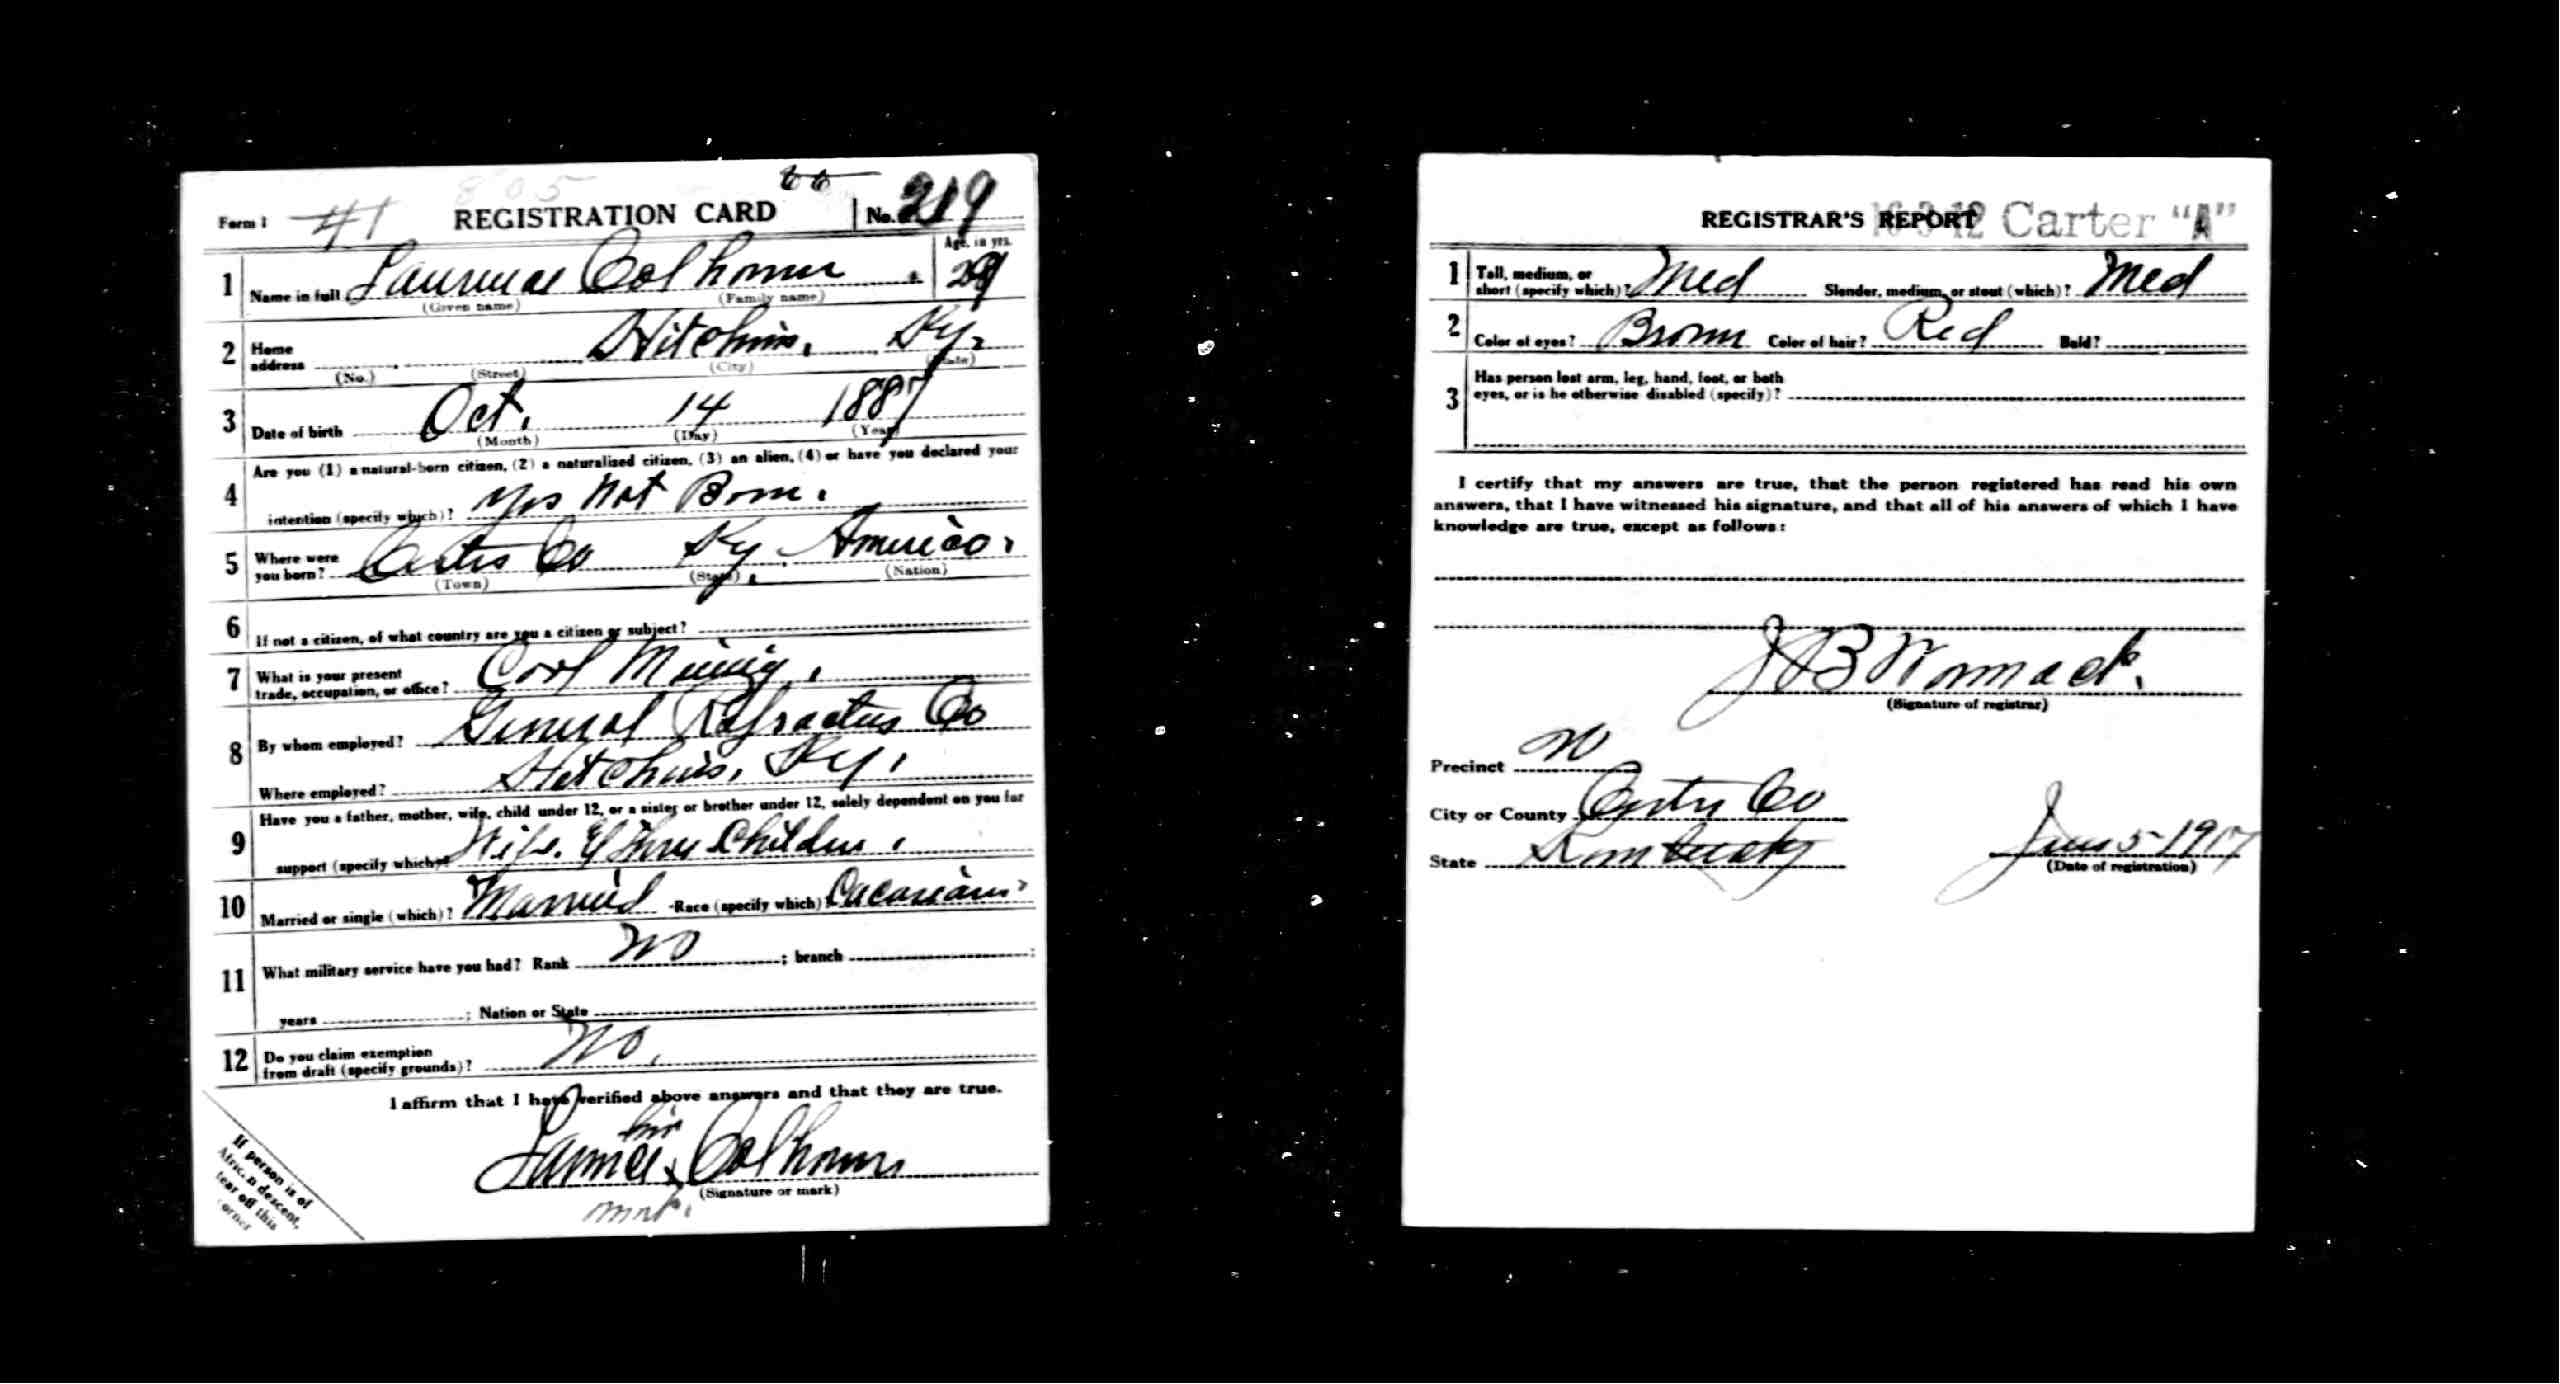 805
66
Form 1 41 REGISTRATION CARD No. 219
1 Name in full Laurence Colhoun Age, in yrs. 29
(Given name) (Family name)
2 Home address Hitchins, Ky.
(No.) (Street) (City) (State)
3 Date of birth Oct. 14 1887
(Month) (Day) (Year)
4 Are you (1) a natural-born citizen, (2) a naturalized citizen, (3) an alien, (4) or have you declared your
intention (specify which)? Yes Nat Born.
5 Where were you born? Carter Co Ky. America.
(Town) (State) (Nation)
6 If not a citizen, of what country are you a citizen or subject?
7 What is your present
trade, occupation, or office? Coal Mining.
8 By whom employed? General Refractus Co
Where employed? Hitchins, Ky.
9 Have you a father, mother, wife, child under 12, or a sister or brother under 12, solely dependent on you for
support (specify which)? Wife. & Three Children.
10 Married or single (which)? Married Race (specify which)? Cacasian
11 What military service have you had? Rank No ; branch ;
years ; Nation or State
12 Do you claim exemption
from draft (specify grounds)? No.
I affirm that I have verified above answers and that they are true.
his
x Colhoun
(Signature or mark)
mark.
If person is of
African descent,
tear off this
corner
REGISTRAR'S REPORT 16-3-12 Carter "A"
1 Tall, medium, or
short (specify which)? Med Slender, medium, or stout (which)? Med
2 Color of eyes? Brown Color of hair? Red Bald?
3 Has person lost arm, leg, hand, foot, or both
eyes, or is he otherwise disabled (specify)?
I certify that my answers are true, that the person registered has read his own
answers, that I have witnessed his signature, and that all of his answers of which I have
knowledge are true, except as follows:
J B Womack.
(Signature of registrar)
Precinct
City or County Carter Co
State Kentucky June 5-1917
(Date of registration)